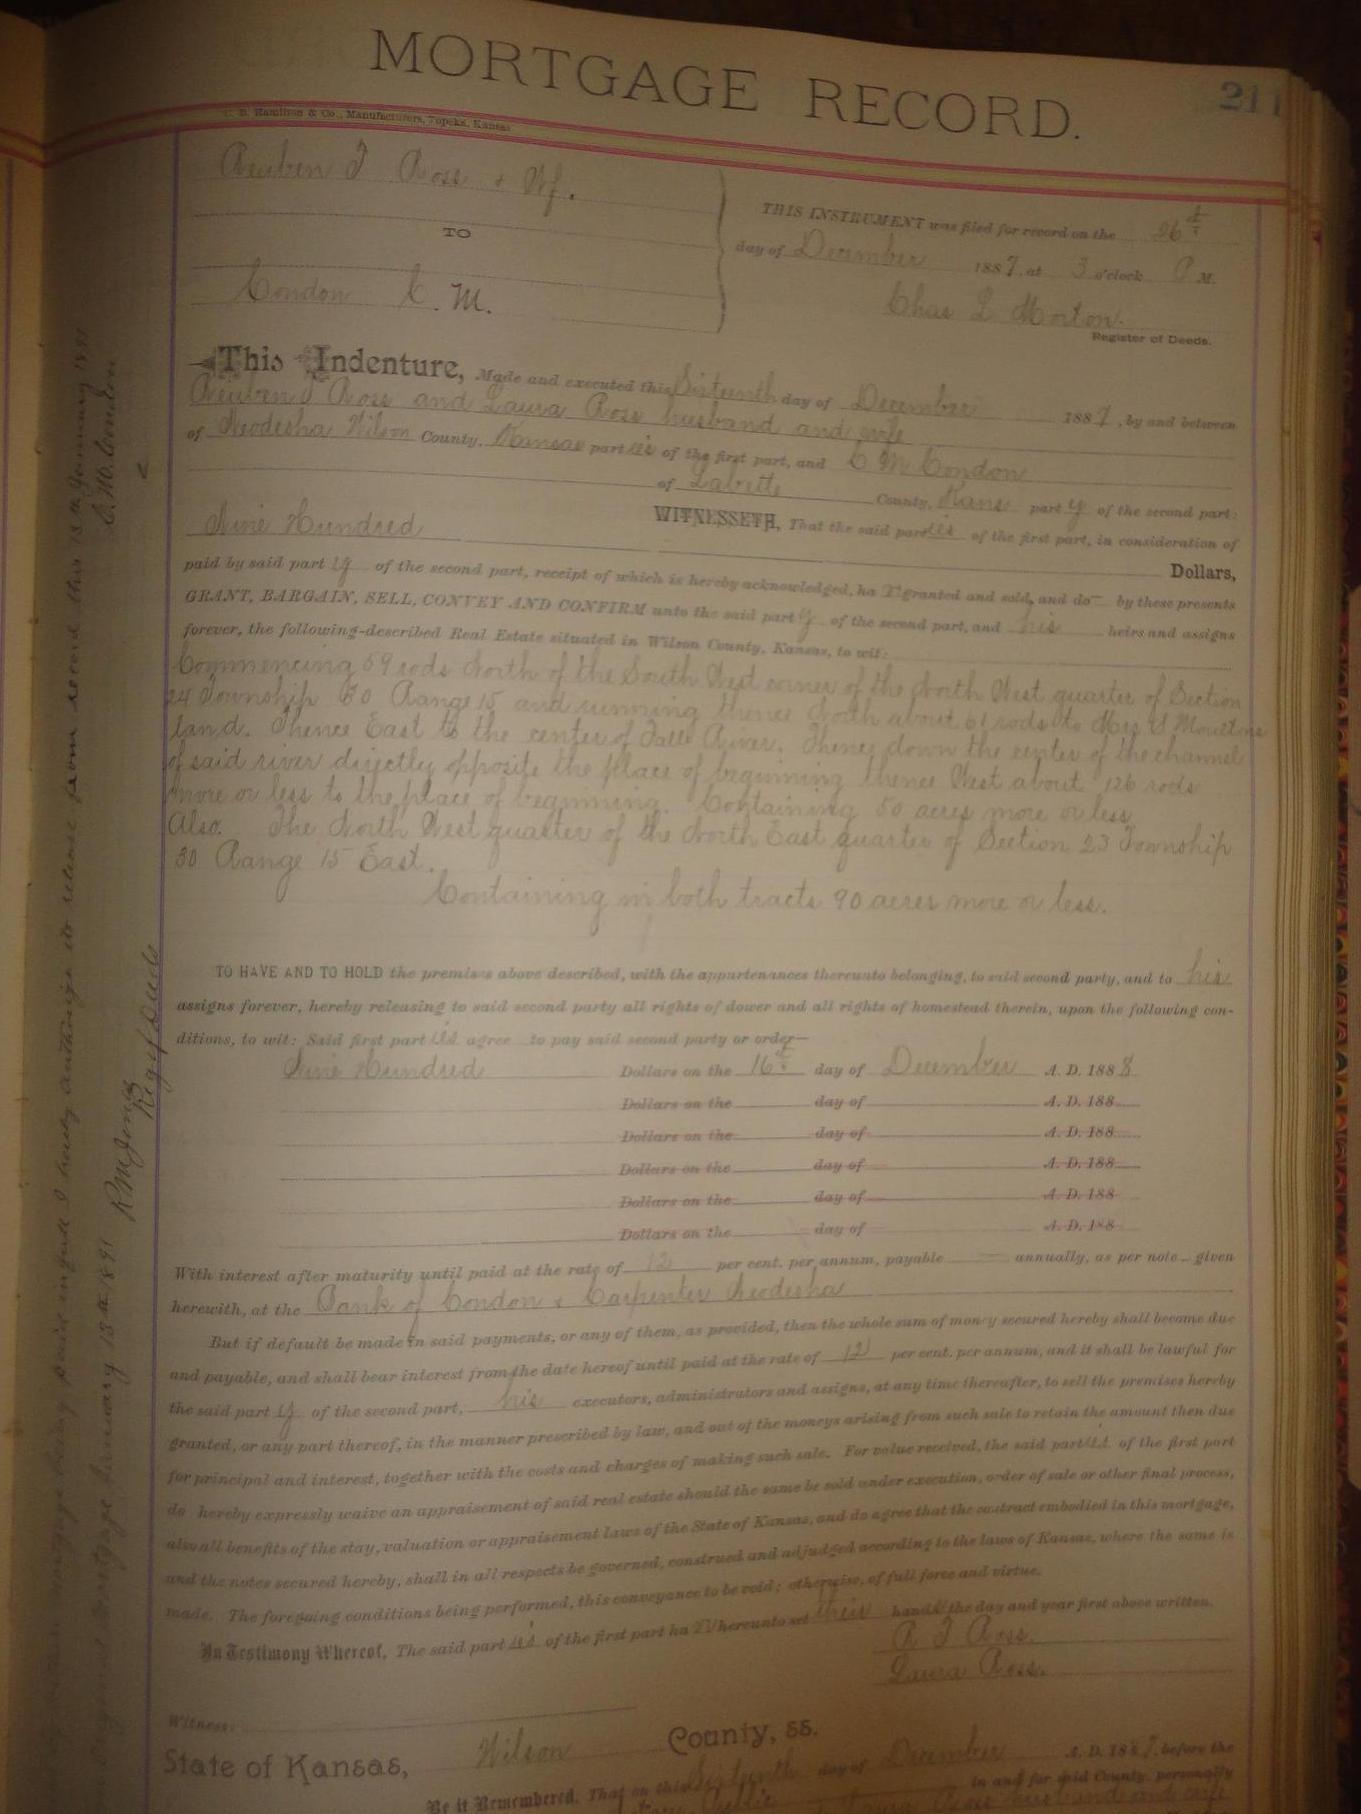 MORTGAGE RECORD.
211
Hamilton & Co., Manufacturers, Topeka, Kansas
Reuben T Ross & Wf.
TO
Condon C. M.
THIS INSTRUMENT was filed for record on the 26th
day of December 1887, at 3 o'clock P M.
Chas L Morton.
Register of Deeds.
This Indenture, Made and executed this Sixteenth day of December 1887, by and between
Reuben T Ross and Laura Ross husband and wife
of Neodesha Wilson County, Kansas part ies of the first part, and C M Condon
of Labette County, Kans part y of the second part:
WITNESSETH, That the said part ies of the first part, in consideration of
Nine Hundred Dollars,
paid by said part y of the second part, receipt of which is hereby acknowledged, ha granted and sold, and do by these presents
GRANT, BARGAIN, SELL, CONVEY AND CONFIRM unto the said part y of the second part, and his heirs and assigns
forever, the following-described Real Estate situated in Wilson County, Kansas, to wit:
Commencing 59 rods North of the South West corner of the North West quarter of Section
24 Township 30 Range 15 and running thence North about 61 rods to Mrs S Moultons
land. Thence East to the center of Fall River. Thence down the center of the channel
of said river directly opposite the place of beginning thence West about 126 rods
more or less to the place of beginning. Containing 50 acres more or less
Also. The North West quarter of the North East quarter of Section 23 Township
30 Range 15 East.
Containing in both tracts 90 acres more or less.
TO HAVE AND TO HOLD the premises above described, with the appurtenances thereunto belonging, to said second party, and to his
assigns forever, hereby releasing to said second party all rights of dower and all rights of homestead therein, upon the following con-
ditions, to wit: Said first part ies agree to pay said second party or order—
Nine Hundred Dollars on the 16th day of December A. D. 1888
Dollars on the day of A. D. 188
Dollars on the day of A. D. 188
Dollars on the day of A. D. 188
Dollars on the day of A. D. 188
Dollars on the day of A. D. 188
With interest after maturity until paid at the rate of 12 per cent. per annum, payable annually, as per note given
herewith, at the Bank of Condon & Carpenter Neodesha
But if default be made in said payments, or any of them, as provided, then the whole sum of money secured hereby shall become due
and payable, and shall bear interest from the date hereof until paid at the rate of 12 per cent. per annum, and it shall be lawful for
the said part y of the second part, his executors, administrators and assigns, at any time thereafter, to sell the premises hereby
granted, or any part thereof, in the manner prescribed by law, and out of the moneys arising from such sale to retain the amount then due
for principal and interest, together with the costs and charges of making such sale. For value received, the said part ies of the first part
do hereby expressly waive an appraisement of said real estate should the same be sold under execution, order of sale or other final process,
also all benefits of the stay, valuation or appraisement laws of the State of Kansas, and do agree that the contract embodied in this mortgage,
and the notes secured hereby, shall in all respects be governed, construed and adjudged according to the laws of Kansas, where the same is
made. The foregoing conditions being performed, this conveyance to be void; otherwise, of full force and virtue.
In Testimony Whereof, The said part ies of the first part ha ve hereunto set their hands the day and year first above written.
R T Ross.
Laura Ross.
Witness:
State of Kansas, Wilson County, ss.
Be it Remembered, That on this Sixteenth day of December A. D. 1887, before the
in and for said County, personally
Ross husband and wife
mortgage being paid in full I hereby authorize its release from record this January 1891
C. M. Condon
Mortgage January 13th 1891
Reg of Deeds